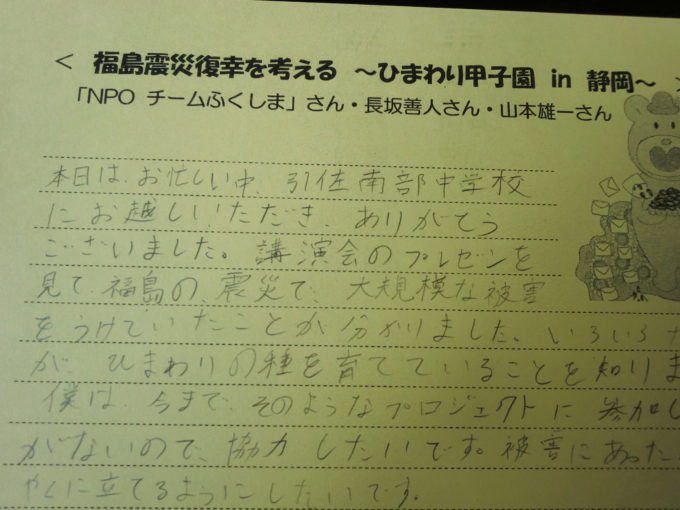 < 福島震災復幸を考える ~ひまわり甲子園 in 静岡~ >
「NPO チームふくしま」さん・長坂善人さん・山本雄一さん
本日は、お忙しい中、引佐南部中学校
にお越しいただき、ありがとう
ございました。講演会のプレゼンを
見て、福島の、震災で、大規模な被害
をうけていたことが分かりました。いろいろ
が、ひまわりの種を育てていることを知りま
僕は、今まで、そのようなプロジェクトに参加し
がないので、協力したいです。被害にあった
やくに立てるようにしたいです。